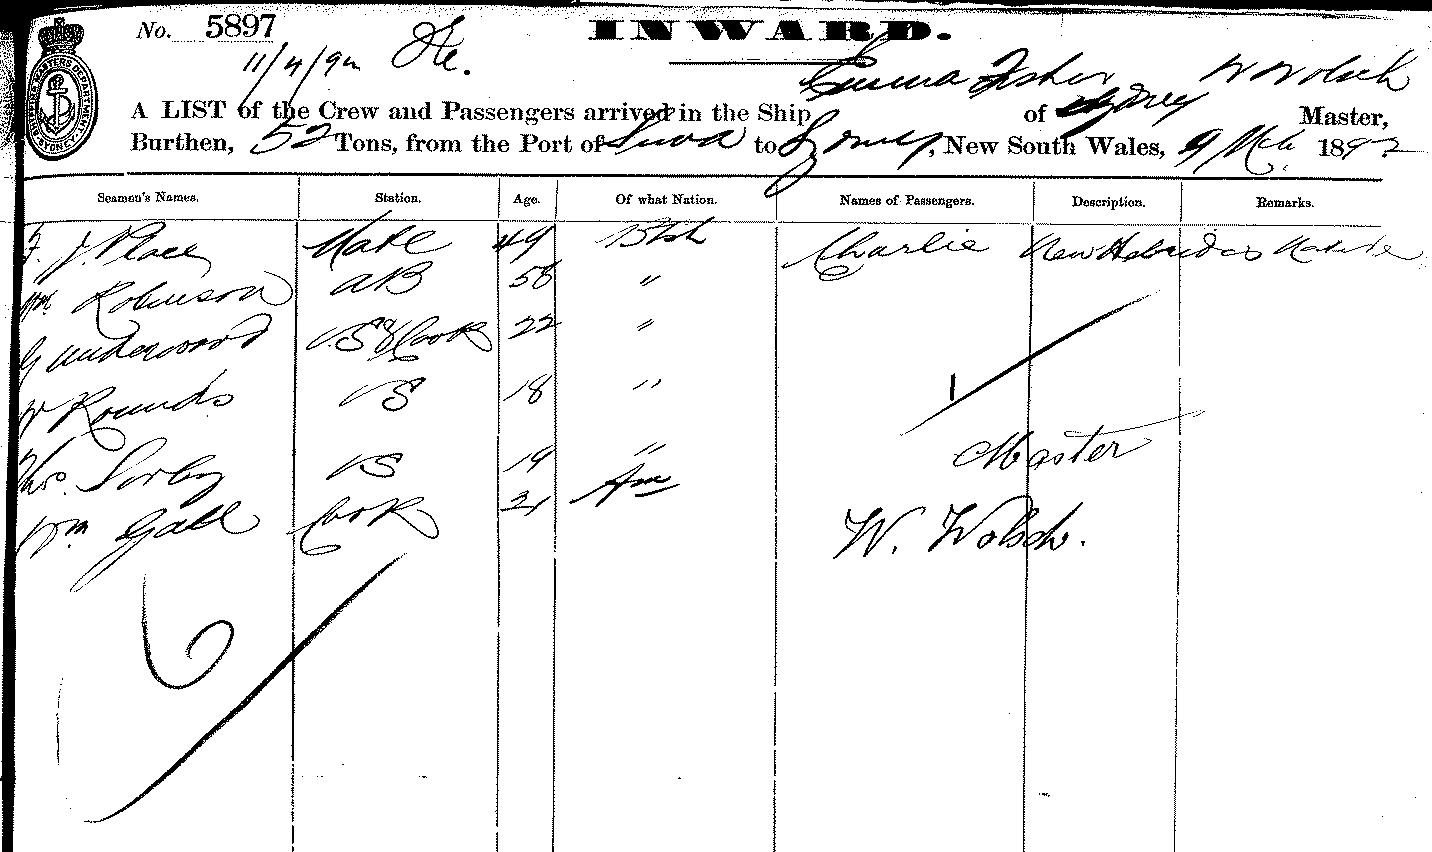 No. 5897
INWARD.
11/4/92
Emma Fisher W Wolsch
A LIST of the Crew and Passengers arrived in the Ship of Sydney Master,
Burthen, 52 Tons, from the Port of Suva to Sydney, New South Wales, 9 Mch. 1892
Seamen's Names. Station. Age. Of what Nation. Names of Passengers. Description. Remarks.
F. J. Place Mate 49 Btsh Charlie New Hebrides Native
Wm Robinson AB 58 "
G Underwood OS & Cook 22 "
W Rounds OS 18 "
Thos. Sorby OS 19 "
Wm Gall Cook 21 Am
1
Master
W. Wolsch.
6